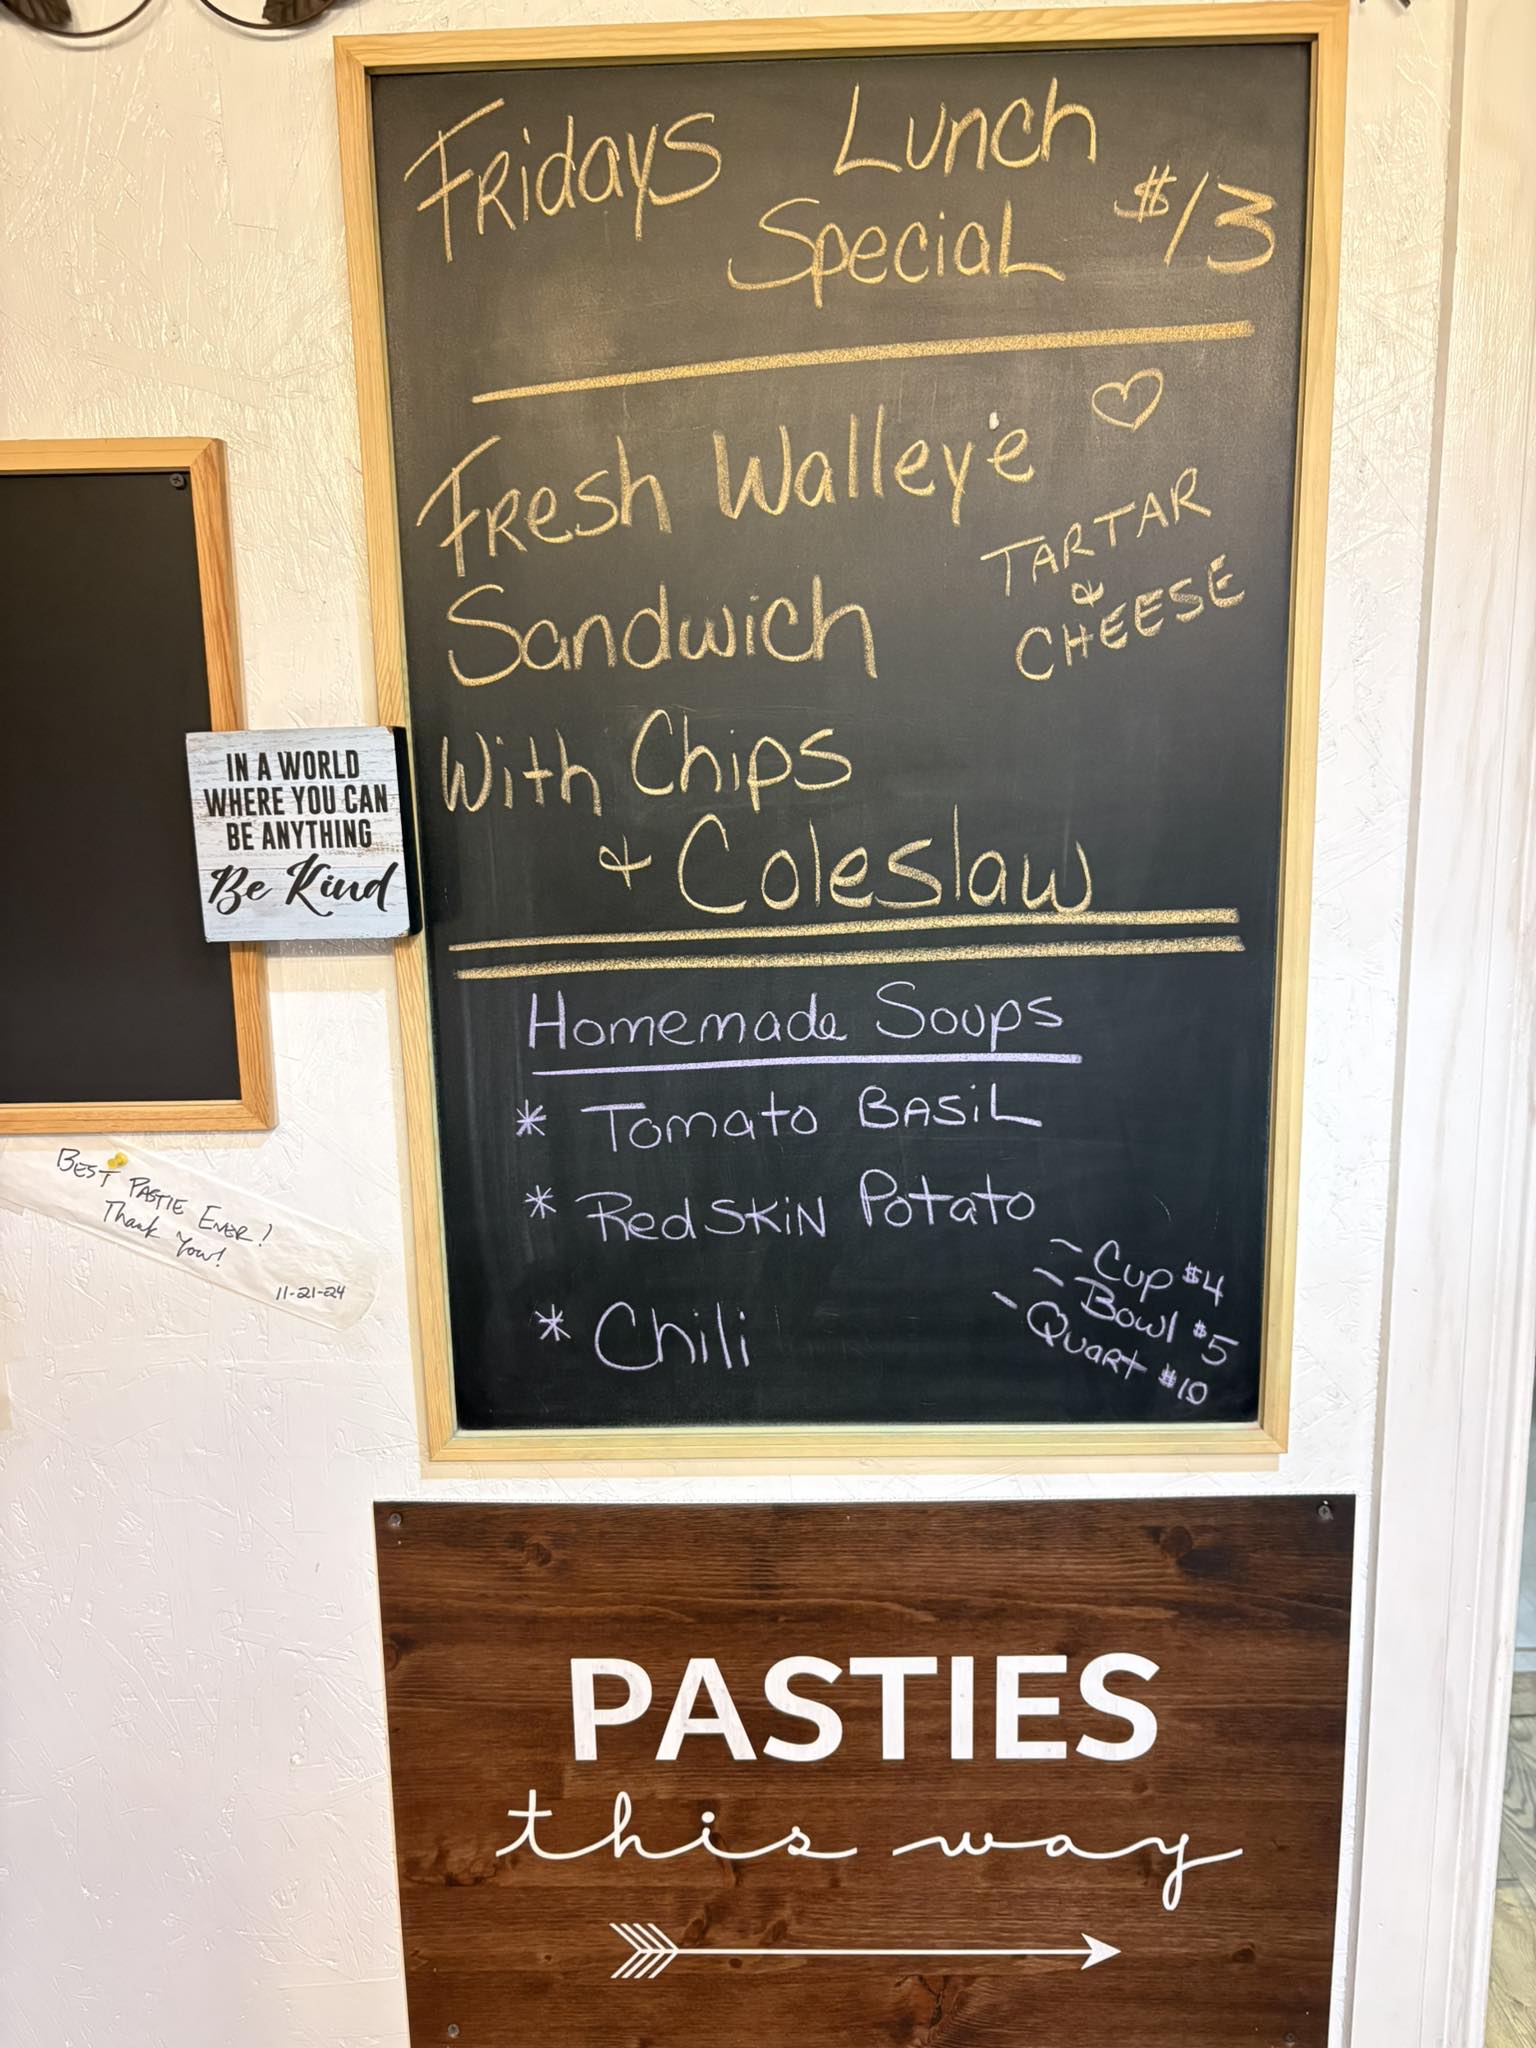 Fridays Lunch
Special $13
Fresh Walleye
Sandwich
TARTAR
&
CHEESE
With Chips
& Coleslaw
Homemade Soups
* Tomato Basil
* Redskin Potato
* Chili
- Cup $4
- Bowl $5
- Quart $10
IN A WORLD
WHERE YOU CAN
BE ANYTHING
Be Kind
BEST PASTIE EVER!
Thank You!
11-21-24
PASTIES
this way